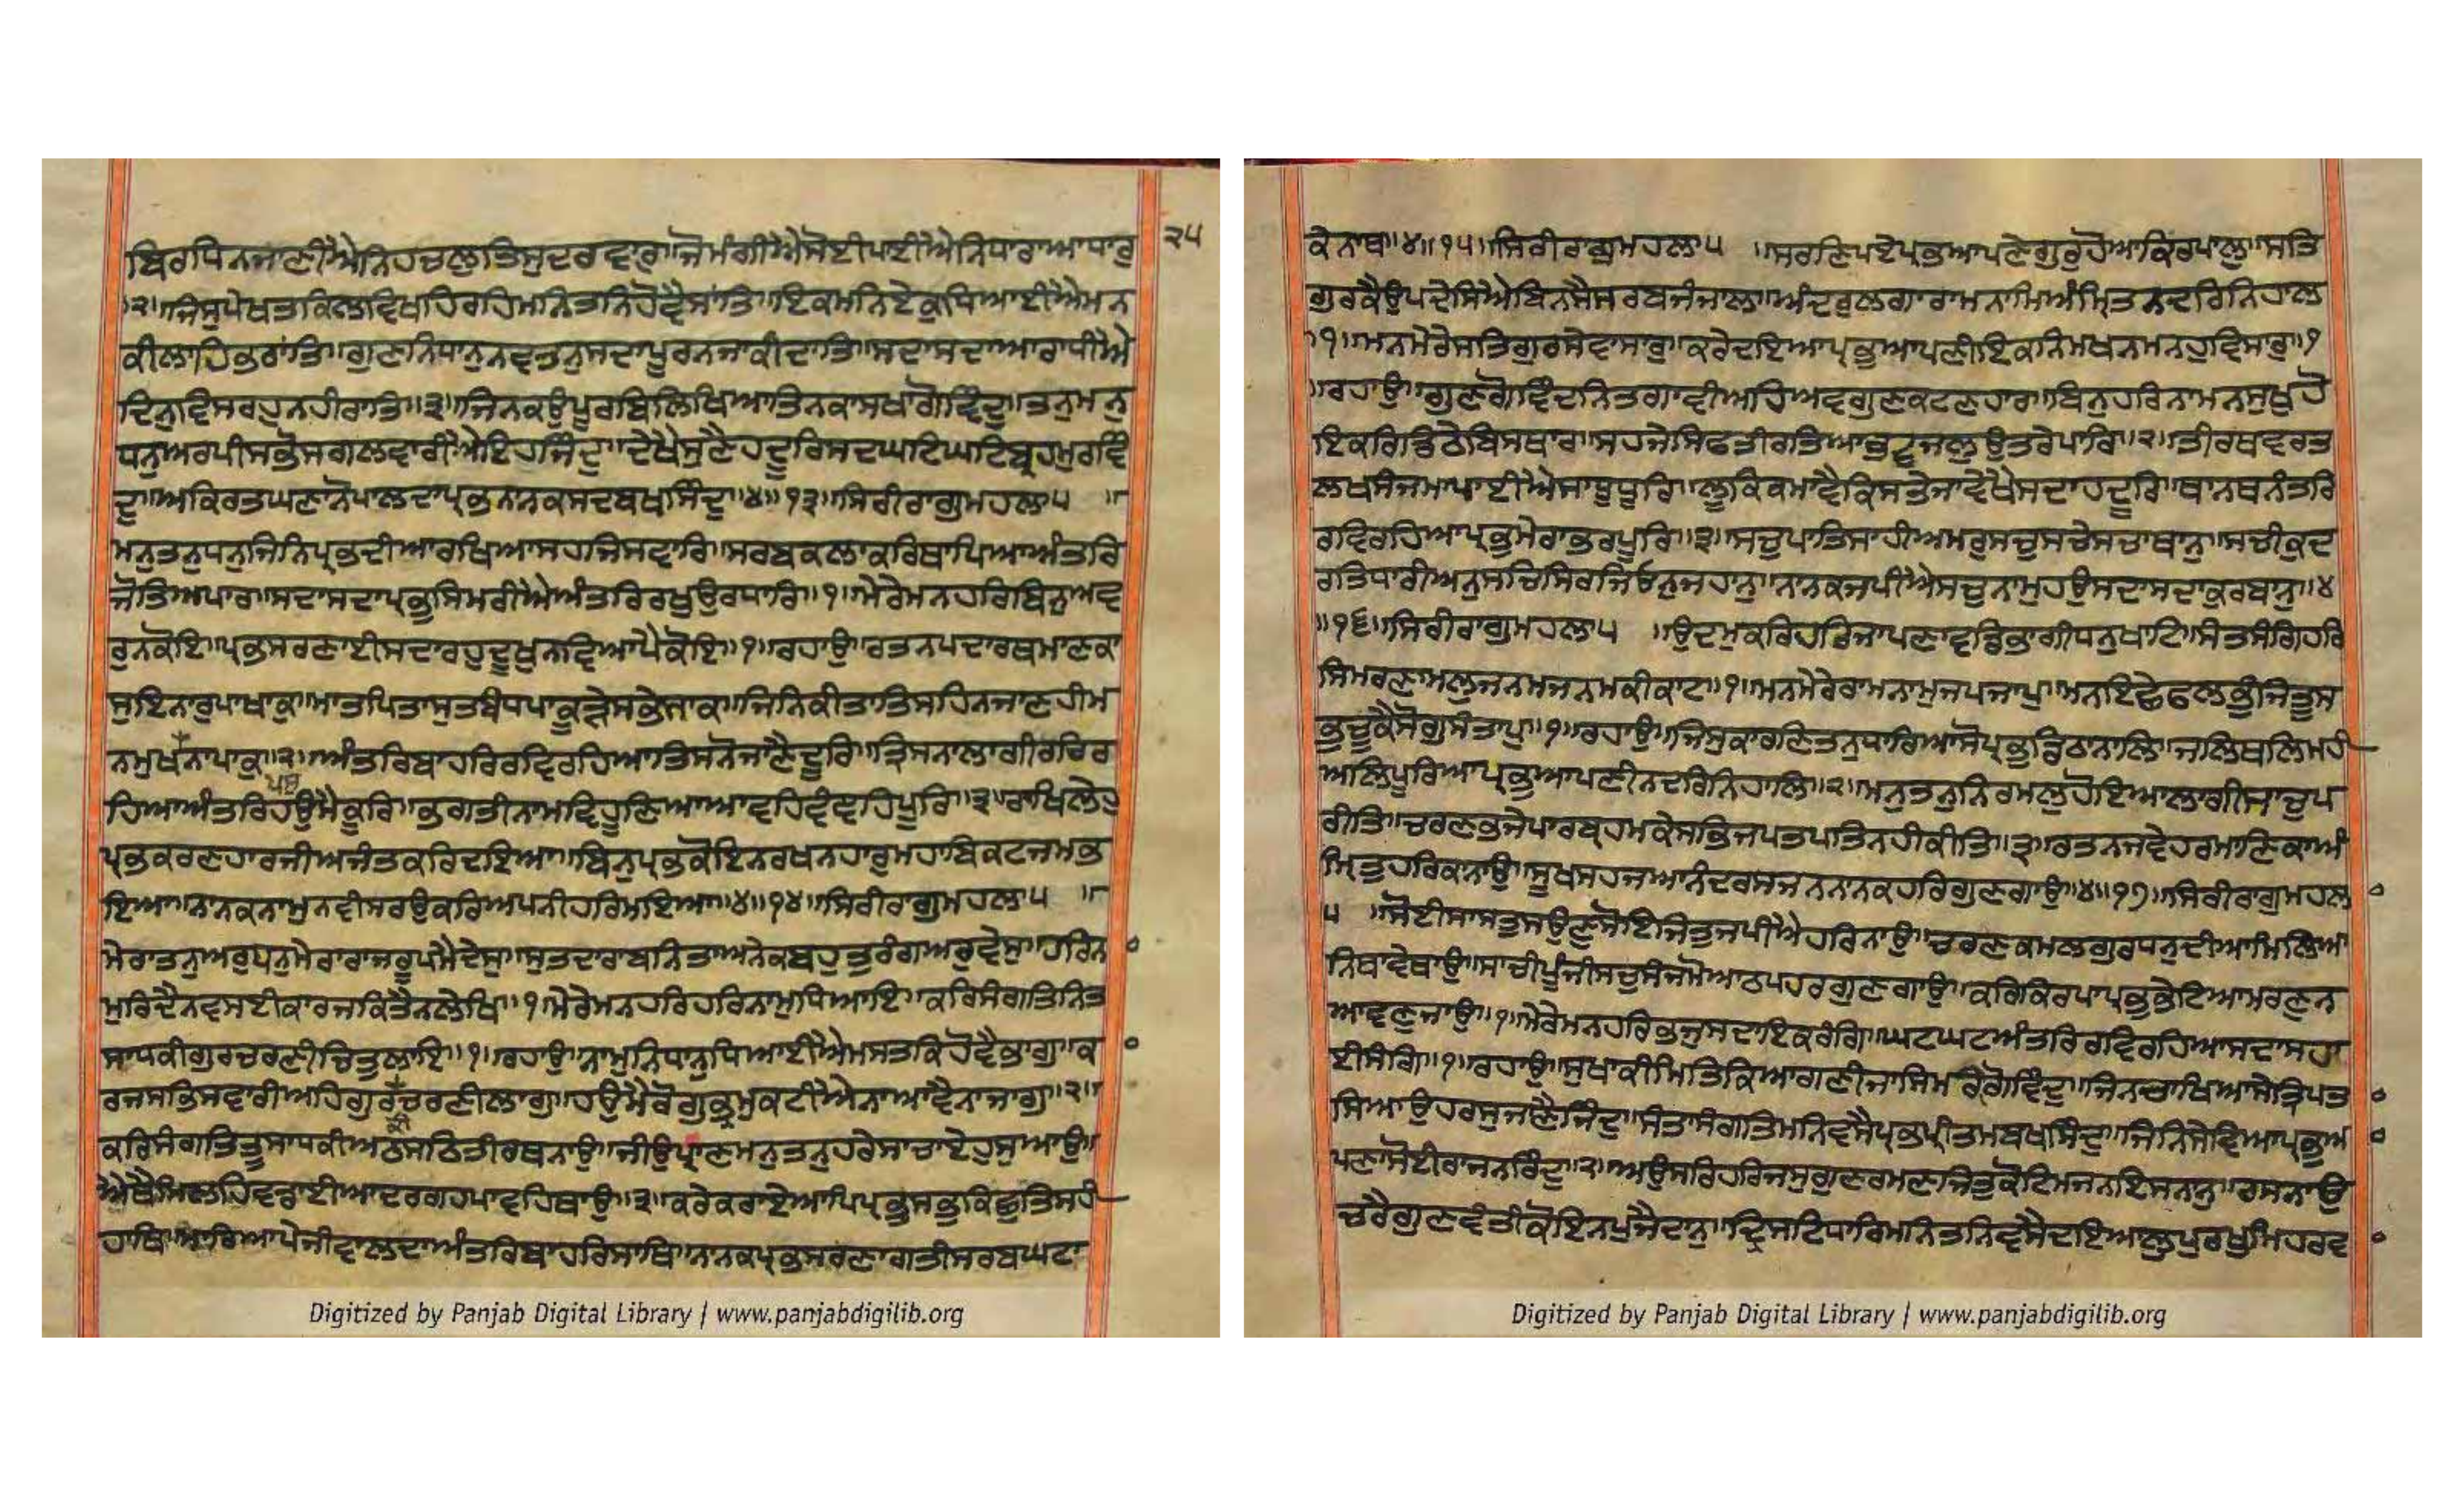 ਥਿਰਪਿਨਜਾਣੀਐਨਿਹਚਲੁਤਿਸੁਦਰਵਾਰੁ॥ਜੋਮੰਗੀਐਸੋਈਪਈਐਨਿਧਾਰਾਆਧਾਰੁ
੨੫
।੨॥ਜਿਸੁਪੇਖਤਕਿਲਵਿਖਹਿਰਹਿਮਨਿਤਨਿਹੋਵੈਸਾਂਤਿ॥ਇਕਮਨਿਏਕੁਧਿਆਈਐਮਨ
ਕੀਲਾਹਿਭਰਾਂਤਿ॥ਗੁਣਨਿਧਾਨੁਨਵਤਨੁਸਦਾਪੂਰਨਜਾਕੀਦਾਤਿ॥ਸਦਾਸਦਾਆਰਾਧੀਐ
ਦਿਨੁਵਿਸਰਹੁਨਹੀਰਾਤਿ॥੩॥ਜਿਨਕਉਪੂਰਬਿਲਿਖਿਆਤਿਨਕਾਸਖਾਗੋਵਿੰਦੁ॥ਤਨੁਮਨੁ
ਧਨੁਅਰਪੀਸਭੋਸਗਲਵਾਰੀਐਇਹਜਿੰਦੁ॥ਦੇਖੈਸੁਣੈਹਦੂਰਿਸਦਘਟਿਘਟਿਬ੍ਰਹਮੁਰਵਿੰ
ਦੁ॥ਅਕਿਰਤਘਣਾਨੋਪਾਲਦਾਪ੍ਰਭਨਨਕਸਦਬਖਸਿੰਦੁ॥੪॥੧੩॥ਸਿਰੀਰਾਗੁਮਹਲਾ੫ ॥
ਮਨੁਤਨੁਧਨੁਜਿਨਿਪ੍ਰਭਦੀਆਰਖਿਆਸਹਜਿਸਵਾਰਿ॥ਸਰਬਕਲਾਕਰਿਥਾਪਿਆਅੰਤਰਿ
ਜੋਤਿਅਪਾਰ॥ਸਦਾਸਦਾਪ੍ਰਭੁਸਿਮਰੀਐਅੰਤਰਿਰਖੁਉਰਧਾਰਿ॥੧॥ਮੇਰੇਮਨਹਰਿਬਿਨੁਅਵ
ਰੁਨਕੋਇ॥ਪ੍ਰਭਸਰਣਾਈਸਦਾਰਹੁਦੂਖੁਨਵਿਆਪੈਕੋਇ॥੧॥ਰਹਾਉ॥ਰਤਨਪਦਾਰਥਮਾਣਕਾ
ਸੁਇਨਾਰੁਪਾਖਾਕੁ॥ਮਾਤਪਿਤਾਸੁਤਬੰਧਪਾਕੂੜੇਸਭੇਸਾਕ॥ਜਿਨਿਕੀਤਾਤਿਸਹਿਨਜਾਣਹੀਮ
ਨਮੁਖਨਾਪਾਕੁ॥੨॥ਅੰਤਰਿਬਾਹਰਿਰਵਿਰਹਿਆਤਿਸਨੋਜਾਣੈਦੂਰਿ॥ਤ੍ਰਿਸਨਾਲਾਗੀਰਚਿਰ
ਹਿਆਅੰਤਰਿਹਉਮੈਕੂਰਿ॥ਭਗਤੀਨਾਮਵਿਹੂਣਿਆਆਵਹਿਵੰਞਹਿਪੂਰਿ॥੩॥ਰਾਖਿਲੇਹੁ
ਪ੍ਰਭਕਰਣਹਾਰਜੀਅਜੰਤਕਰਿਦਇਆ॥ਬਿਨੁਪ੍ਰਭਕੋਇਨਰਖਨਹਾਰੁਮਹਾਬਿਕਟਜਮਭ
ਇਆ॥ਨਾਨਕਨਾਮੁਨਵੀਸਰਉਕਰਿਅਪਨੀਹਰਿਮਇਆ॥੪॥੧੪॥ਸਿਰੀਰਾਗੁਮਹਲਾ੫ ॥
ਮੇਰਾਤਨੁਅਰੁਧਨੁਮੇਰਾਰਾਜਰੂਪਮੈਦੇਸੁ॥ਸੁਤਦਾਰਾਬਨਿਤਾਅਨੇਕਬਹੁਤੁਰੰਗਅਰੁਵੇਸੁ॥ਹਰਿਨ
ਮੁਰਿਦੈਨਵਸਈਕਾਰਜਕਿਤੈਨਲੇਖਿ॥੧॥ਮੇਰੇਮਨਹਰਿਹਰਿਨਾਮੁਧਿਆਇ॥ਕਰਿਸੰਗਤਿਨਿਤ
ਸਾਧਕੀਗੁਰਚਰਣੀਚਿਤੁਲਾਇ॥੧॥ਰਹਾਉ॥ਨਾਮੁਨਿਧਾਨੁਧਿਆਈਐਮਸਤਕਿਹੋਵੈਭਾਗੁ॥ਕਾ
ਰਜਸਭਿਸਵਾਰੀਅਹਿਗੁਰਚਰਣੀਲਾਗੁ॥ਹਉਮੈਰੋਗੁਭ੍ਰਮੁਕਟੀਐਨਾਆਵੈਨਾਜਾਗੁ॥੨॥
ਕਰਿਸੰਗਤਿਤੂਸਾਧਕੀਅਠਸਠਿਤੀਰਥਨਾਉ॥ਜੀਉਪ੍ਰਾਣਮਨੁਤਨੁਹਰੇਸਾਚਾਏਹੁਸੁਆਉ॥
ਐਥੈਮਿਲਹਿਵਡਾਈਆਦਰਗਹਪਾਵਹਿਥਾਉ॥੩॥ਕਰੇਕਰਾਏਆਪਿਪ੍ਰਭੁਸਭੁਕਿਛੁਤਿਸਹੀ
ਹਾਥਿ॥ਮਾਰਿਆਪੇਜੀਵਾਲਦਾਅੰਤਰਿਬਾਹਰਿਸਾਥਿ॥ਨਨਕਪ੍ਰਭਸਰਣਾਗਤੀਸਰਬਘਟਾ
Digitized by Panjab Digital Library | www.panjabdigilib.org
ਕੇਨਾਥ॥੪॥੧੫॥ਸਿਰੀਰਾਗੁਮਹਲਾ੫ ॥ਸਰਣਿਪਏਪ੍ਰਭਆਪਣੇਗੁਰੁਹੋਆਕਿਰਪਾਲੁ॥ਸਤਿ
ਗੁਰਕੈਉਪਦੇਸਿਐਬਿਨਸੈਸਰਬਜੰਜਾਲ॥ਅੰਦਰੁਲਗਾਰਾਮਨਾਮਿਅੰਮ੍ਰਿਤਨਦਰਿਨਿਹਾਲ
।੧॥ਮਨਮੇਰੇਸਤਿਗੁਰਸੇਵਾਸਾਰੁ॥ਕਰੇਦਇਆਪ੍ਰਭੁਆਪਣੀਇਕਨਿਮਖਨਮਨਹੁਵਿਸਾਰੁ॥੧
॥ਰਹਾਉ॥ਗੁਣਗੋਵਿੰਦਨਿਤਗਾਵੀਅਹਿਅਵਗੁਣਕਟਣਹਾਰ॥ਬਿਨੁਹਰਿਨਾਮਨਸੁਖੁਹੋ
ਇਕਰਿਡਿਠੇਬਿਸਥਾਰ॥ਸਹਜੇਸਿਫਤੀਰਤਿਆਭਵਜਲੁਉਤਰੇਪਾਰਿ॥੨॥ਤੀਰਥਵਰਤ
ਲਖਸੰਜਮਾਪਾਈਐਸਾਧੂਧੂਰਿ॥ਲੂਕਿਕਮਾਵੈਕਿਸਤੇਜਾਵੇਖੈਸਦਾਹਦੂਰਿ॥ਥਾਨਥਨੰਤਰਿ
ਰਵਿਰਹਿਆਪ੍ਰਭੁਮੇਰਾਭਰਪੂਰਿ॥੩॥ਸਚੁਪਾਤਿਸਾਹੀਅਮਰੁਸਚੁਸਚੇਸਚਾਥਾਨੁ॥ਸਚੀਕੁਦ
ਰਤਿਧਾਰੀਅਨੁਸਚਿਸਿਰਜਿਓਨੁਜਹਾਨੁ॥ਨਾਨਕਜਪੀਐਸਚੁਨਾਮੁਹਉਸਦਾਸਦਾਕੁਰਬਾਨੁ॥੪
॥੧੬॥ਸਿਰੀਰਾਗੁਮਹਲਾ੫ ॥ਉਦਮੁਕਰਿਹਰਿਜਾਪਣਾਵਡਭਾਗੀਧਨੁਖਾਟਿ॥ਸੰਤਸੰਗਿਹਰਿ
ਸਿਮਰਣਾਮਲੁਜਨਮਜਨਮਕੀਕਾਟ॥੧॥ਮਨਮੇਰੇਰਾਮਨਾਮੁਜਪਜਾਪੁ॥ਮਨਇਛੇਫਲਭੁੰਚਿਤੂਸ
ਭੁਚੂਕੈਸੋਗੁਸੰਤਾਪੁ॥੧॥ਰਹਾਉ॥ਜਿਸੁਕਾਰਣਿਤਨੁਧਾਰਿਆਸੋਪ੍ਰਭੁਡਿਠਾਨਾਲਿ॥ਜਲਿਥਲਿਮਹੀ
ਅਲਿਪੂਰਿਆਪ੍ਰਭੁਆਪਣੀਨਦਰਿਨਿਹਾਲਿ॥੨॥ਮਨੁਤਨੁਨਿਰਮਲੁਹੋਇਆਲਾਗੀਸਾਚੁਪ
ਰੀਤਿ॥ਚਰਣਭਜੇਪਾਰਬ੍ਰਹਮਕੇਸਭਿਜਪਤਪਤਿਨਹੀਕੀਤਿ॥੩॥ਰਤਨਜਵੇਹਰਮਾਣਿਕਾਅੰ
ਮ੍ਰਿਤੁਹਰਿਕਨਾਉ॥ਸੂਖਸਹਜਆਨੰਦਰਸਜਨਨਾਨਕਹਰਿਗੁਣਗਾਉ॥੪॥੧੭॥ਸਿਰੀਰਾਗੁਮਹਲ
੫ ॥ਸੋਈਸਾਸਤੁਸਉਣੁਸੋਇਜਿਤੁਜਪੀਐਹਰਿਨਾਉ॥ਚਰਣਕਮਲਗੁਰਧਨੁਦੀਆਮਿਲਿਆ
ਨਿਥਾਵੇਥਾਉ॥ਸਾਚੀਪੂੰਜੀਸਚੁਸੰਜਮੋਆਠਪਹਰਗੁਣਗਾਉ॥ਕਰਿਕਿਰਪਾਪ੍ਰਭੁਭੇਟਿਆਮਰਣੁਨ
ਆਵਣੁਜਾਉ॥੧॥ਮੇਰੇਮਨਹਰਿਭਜੁਸਦਾਇਕਰੰਗਿ॥ਘਟਘਟਅੰਤਰਿਰਵਿਰਹਿਆਸਦਾਸਹਾ
ਈਸੰਗਿ॥੧॥ਰਹਾਉ॥ਸੁਖਾਕੀਮਿਤਿਕਿਆਗਣੀਜਾਸਿਮਰਿਗੋਵਿੰਦੁ॥ਜਿਨਚਾਖਿਆਸੇਤ੍ਰਿਪਤ
ਸਿਆਉਹਰਸੁਜਣੈਜਿੰਦੁ॥ਸੰਤਾਸੰਗਤਿਮਨਿਵਸੈਪ੍ਰਭਪ੍ਰੀਤਮਬਖਸਿੰਦੁ॥ਜਿਨਿਸੇਵਿਆਪ੍ਰਭੁਆ
ਪਣਾਸੋਈਰਾਜਨਰਿੰਦੁ॥੨॥ਅਉਸਰਿਹਰਿਜਸੁਗੁਣਰਮਣਜਿਤੁਕੋਟਿਮਜਨਇਸਨਾਨੁ॥ਰਸਨਾਉ
ਚਰੈਗੁਣਵੰਤੀਕੋਇਨਪੁਜੈਦਾਨੁ॥ਦ੍ਰਿਸਟਿਧਾਰਿਮਨਿਤਨਿਵਸੈਦਇਆਲੁਪੁਰਖੁਮਿਹਰਵ
Digitized by Panjab Digital Library | www.panjabdigilib.org